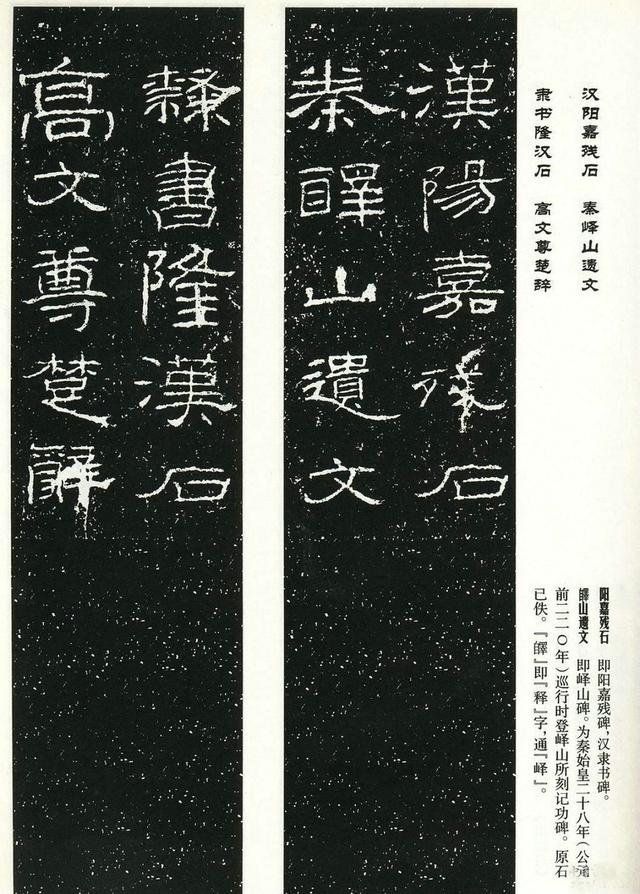 汉阳嘉残石 秦峄山遗文
隶书隆汉石 高文尊楚辞
阳嘉残石 即阳嘉残碑，汉隶书碑。
山遗文 即峄山碑。为秦始皇二十八年（公元
前二二〇年）巡行时登峄山所刻记功碑。原石
已佚。『』即『释』字，通『峄』。
漢陽嘉殘石
秦山遺文
隸書隆漢石
高文尊楚辭